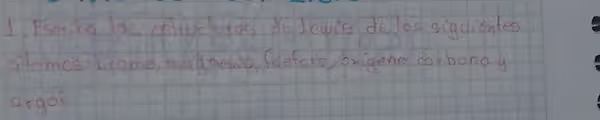 1. Escriba las estructuras de lewis de los siguientes
atomos: bromo, magnesio, fosforo, oxigeno carbono y
argon